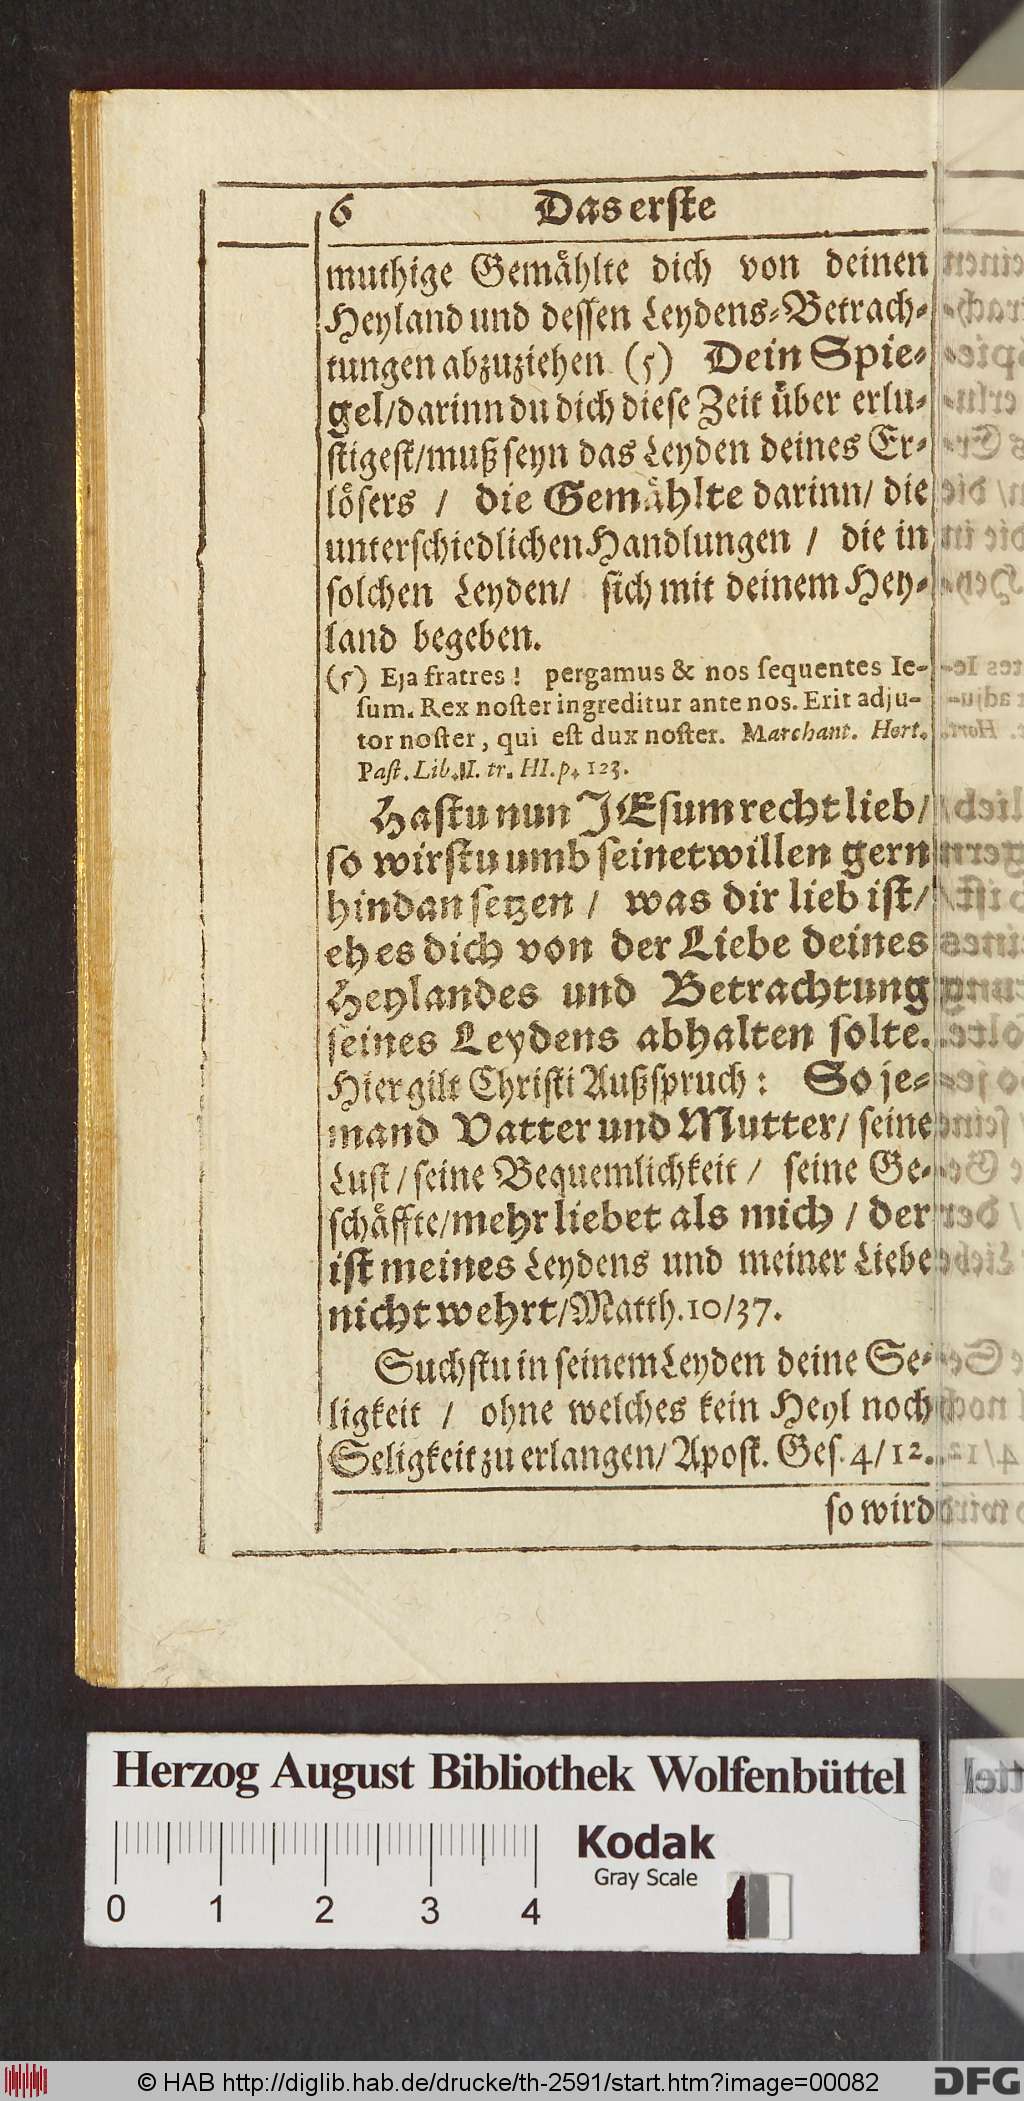 6 Das erste
muthige Gemåhlte dich von deinen
Heyland und dessen Leydens-Betrach-
tungen abzuziehen (5) Dein Spie-
gel/darinn du dich diese Zeit über erlu-
stigest/muß seyn das Leyden deines Er-
lösers / die Gemåhlte darinn/ die
unterschiedlichen Handlungen / die in
solchen Leyden/ sich mit deinem Hey-
land begeben.
(5) Eja fratres! pergamus & nos sequentes Ie-
sum. Rex noster ingreditur ante nos. Erit adju-
tor noster, qui est dux noster. Marchant. Hort.
Past. Lib. II. tr. III. p. 123.
Hastu nun JEsum recht lieb/
so wirstu umb seinetwillen gern
hindan setzen / was dir lieb ist/
eh es dich von der Liebe deines
Heylandes und Betrachtung
seines Leydens abhalten solte.
Hier gilt Christi Außspruch: So je-
mand Vatter und Mutter/ seine
Lust/ seine Bequemlichkeit / seine Ge-
schåffte/mehr liebet als mich / der
ist meines Leydens und meiner Liebe
nicht wehrt/Matth. 10/37.
Suchstu in seinem Leyden deine Se-
ligkeit / ohne welches kein Heyl noch
Seligkeit zu erlangen/ Apost. Ges. 4/12.
so wird
Herzog August Bibliothek Wolfenbüttel
0 1 2 3 4
Kodak
Gray Scale
© HAB http://diglib.hab.de/drucke/th-2591/start.htm?image=00082
DFG